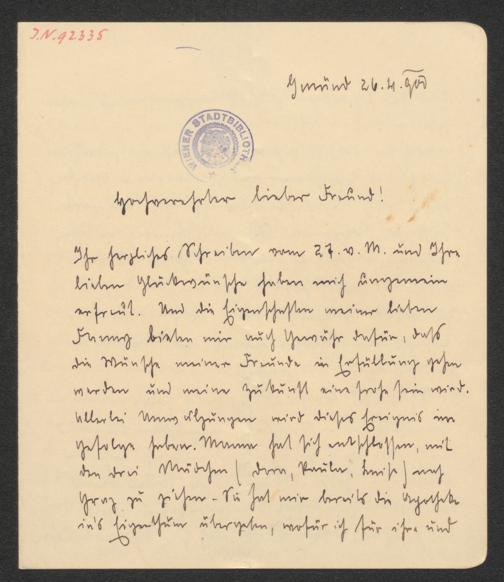 J.N.92335
Gmünd 26.4.900
WIENER STADTBIBLIOTH
Hochverehrter lieber Freund!
Ihr herzliches Schreiben vom 27. v. M. und Ihre
lieben Glückwünsche haben mich ungemein
erfreut. Und die Eigenschaften meiner lieben
Fanny bieten mir auch Gewähr dafür, daß
die Wünsche meiner Freunde in Erfüllung gehen
werden und meine Zukunft eine frohe sein wird.
Allerlei Umwälzungen wird dieses Ereignis im
Gefolge haben. Mama hat sich entschlossen, mit
den drei Mädchen (Dora, Paula, Luise) nach
Graz zu ziehen - Sie hat mir bereits die Apotheke
in's Eigenthum übergeben, wofür ich für ihre und